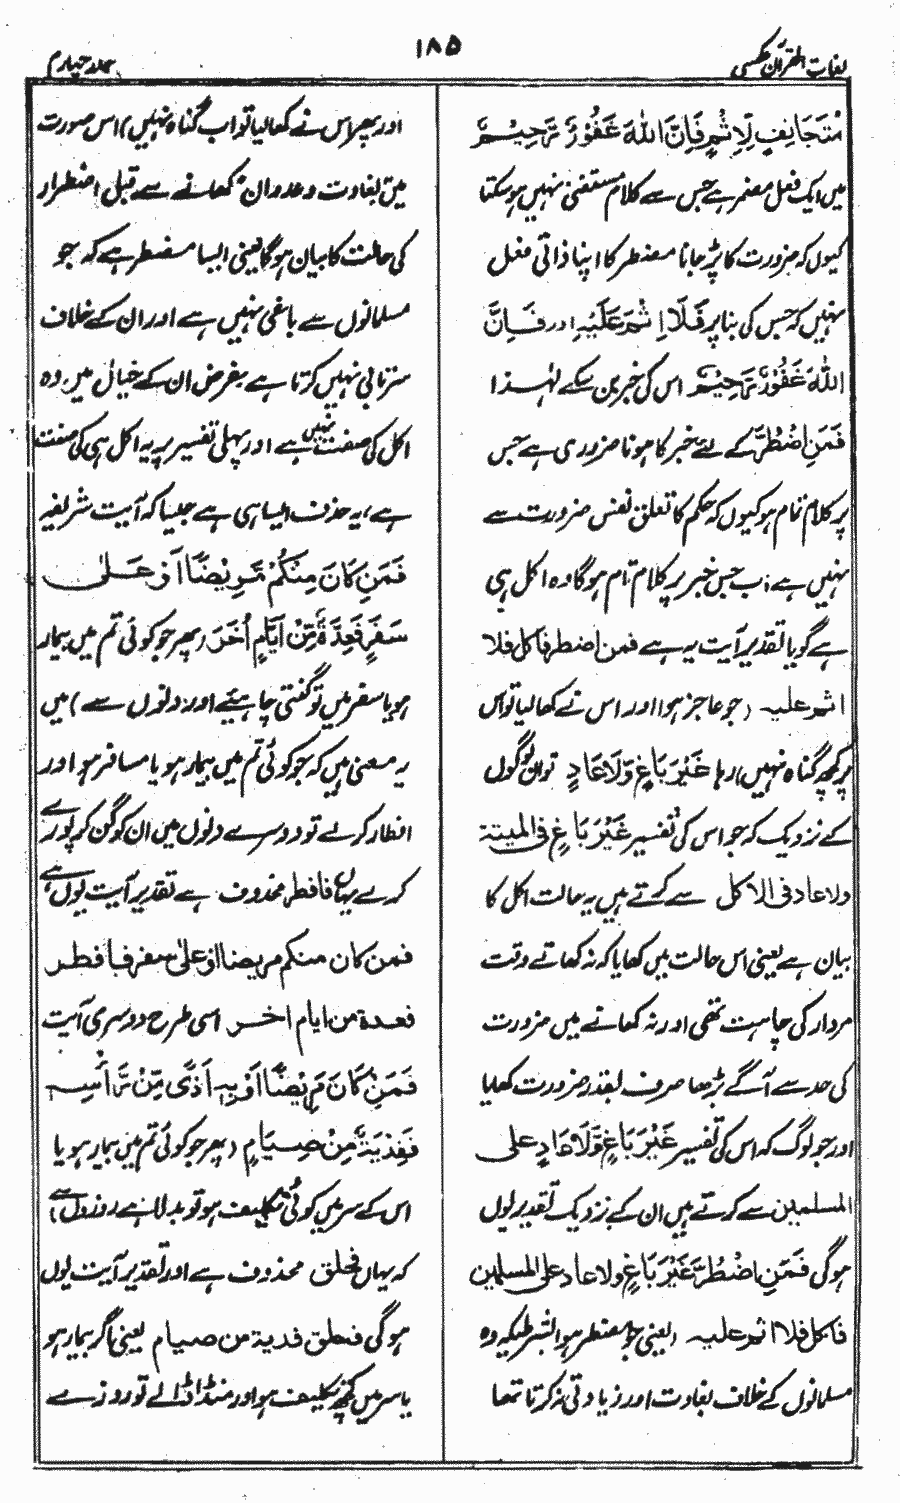 لغات القرآن عکسی
۱۸۵
جلد چہارم
مُتَجَانِفٍ لِّاِثْمٍ فَاِنَّ اللّٰهَ غَفُوْرٌ رَّحِيْمٌ
میں ایک فعل مضمر ہے جس سے کلام مستغنی نہیں ہوسکتا
کیوں کہ ضرورت کا پڑ جانا مضطر کا اپنا ذاتی فعل
نہیں کہ جس کی بنا پر فَلَا اِثْمَ عَلَيْهِ اور فَاِنَّ
اللّٰهَ غَفُوْرٌ رَّحِيْمٌ اس کی خبر بن سکے لہٰذا
فَمَنِ اضْطُرَّ کے لئے خبر کا ہونا ضروری ہے جس
پر کلام تمام ہو کیوں کہ حکم کا تعلق نفس ضرورت سے
نہیں ہے اب جس خبر پر کلام تام ہوگا وہ اکل ہی
ہے گویا تقدیر آیت یہ ہے فمن اضطر فاکل فلا
اثم علیہ (جو عاجز ہوا اور اس نے کھالیا تو اس
پر کچھ گناہ نہیں) رہا غَيْرَ بَاغٍ وَّلَا عَادٍ تو ان لوگوں
کے نزدیک کہ جو اس کی تفسیر غَيْرَ بَاغٍ فی المیتة
ولا عاد فی الاکل سے کرتے ہیں یہ حالت اکل کا
بیان ہے یعنی اس حالت میں کھایا کہ نہ کھاتے وقت
مردار کی چاہت تھی اور نہ کھانے میں ضرورت
کی حد سے آگے بڑھا صرف بقدر ضرورت کھایا
اور جو لوگ کہ اس کی تفسیر غَيْرَ بَاغٍ وَّلَا عَادٍ علی
المسلمین سے کرتے ہیں ان کے نزدیک تقدیر یوں
ہوگی فَمَنِ اضْطُرَّ غَيْرَ بَاغٍ ولا عاد علی المسلمین
فاکل فلا اثم علیہ (یعنی جو مضطر ہوا بشرطیکہ وہ
مسلمانوں کے خلاف بغاوت اور زیادتی نہ کرتا تھا
اور پھر اس نے کھالیا تو اب گناہ نہیں) اس صورت
میں بغاوت و عدوان کھانے سے قبل اضطرار
کی حالت کا بیان ہوگا یعنی ایسا مضطر ہے کہ جو
مسلمانوں سے باغی نہیں ہے اور ان کے خلاف
سرتابی نہیں کرتا ہے بغرض ان کے خیال میں وہ
اکل کی صفت نہیں ہے اور پہلی تفسیر پر یہ اکل ہی کی صفت
ہے، یہ حذف ایسا ہی ہے جیسا کہ آیت شریفہ
فَمَنِ كَانَ مِنْكُمْ مَّرِيْضًا اَوْ عَلٰى
سَفَرٍ فَعِدَّةٌ مِّنْ اَيَّامٍ اُخَرَ (پھر جو کوئی تم میں بیمار
ہو یا سفر میں تو گنتی چاہیئے اور دنوں سے) میں
یہ معنی ہیں کہ جو کوئی تم میں بیمار ہو یا مسافر ہو اور
افطار کرلے تو دوسرے دنوں میں ان کو گن کر پورے
کرے یہاں فافطر محذوف ہے تقدیر آیت یوں ہے،
فمن کان منکم مریضا او علیٰ سفر فافطر
فعدة من ایام اخر اسی طرح دوسری آیت
فَمَنِ كَانَ مَرِيْضًا اَوْ بِهٖ اَذًى مِّنْ رَّاْسِهٖ
فَفِدْيَةٌ مِنْ صِيَامٍ (پھر جو کوئی تم میں بیمار ہو یا
اس کے سر میں کوئی تکلیف ہو تو بدلا ہے روزوں سے)
کہ یہاں فحلق محذوف ہے اور تقدیر آیت یوں
ہوگی فحلق فدیة من صیام یعنی اگر بیمار ہو
یا سر میں کچھ تکلیف ہو اور منڈا ڈالے تو روزے